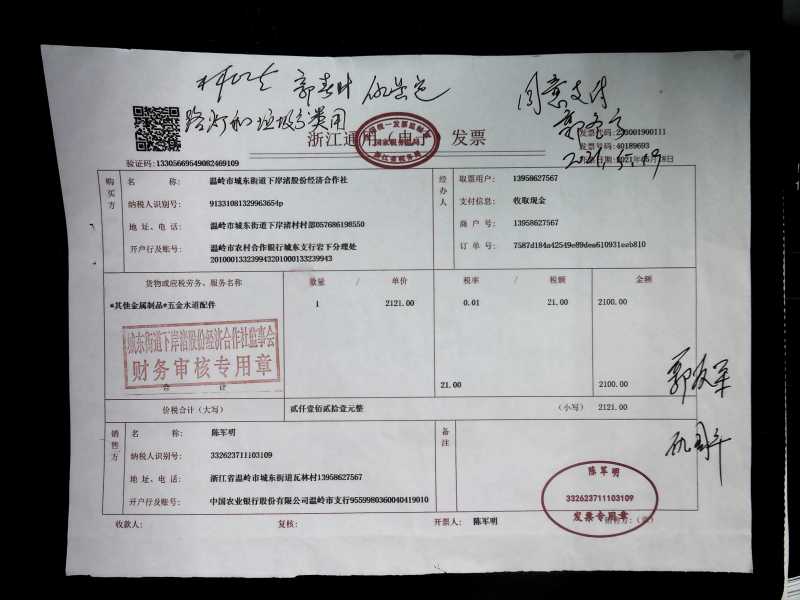 同意支付
路灯和垃圾房费用
浙江通用（电子）发票
全国统一发票监制章
国家税务总局
浙江省税务局
发票号码: 40189693
验证码: 13305669549082469109
购买方
名 称: 温岭市城东街道下岸渚股份经济合作社
纳税人识别号: 91331081329963654p
地 址、电 话: 温岭市城东街道下岸渚村村部057686198550
开户行及账号: 温岭市农村合作银行城东支行岩下分理处
201000133239943201000133239943
经办人
取票用户: 13958627567
支付信息: 收取现金
商 户 号: 13958627567
订 单 号: 7587d184a42549e89dea610931eeb810
货物或应税劳务、服务名称 数量 / 单价 税率 / 税额 金额
*其他金属制品*五金水道配件 1 2121.00 0.01 21.00 2100.00
城东街道下岸渚股份经济合作社监事会
财务审核专用章
合 计 21.00 2100.00
价税合计（大写） 贰仟壹佰贰拾壹元整 （小写） 2121.00
销售方
名 称: 陈军明
纳税人识别号: 332623711103109
地 址、电 话: 浙江省温岭市城东街道瓦林村13958627567
开户行及账号: 中国农业银行股份有限公司温岭市支行9559980360040419010
备注
郭友军
陈军明
332623711103109
发票专用章
收款人: 复核: 开票人: 陈军明 销售方: (章)